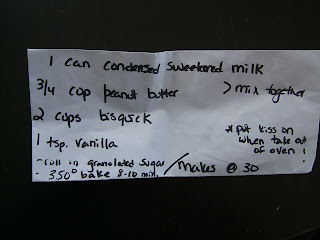 1 can condensed sweetened milk
3/4 cup peanut butter > mix together
2 cups bisquick
1 tsp. vanilla
* put kiss on
when take out
of oven!
- roll in granulated sugar
- 350° bake 8-10 min.
/ makes @ 30